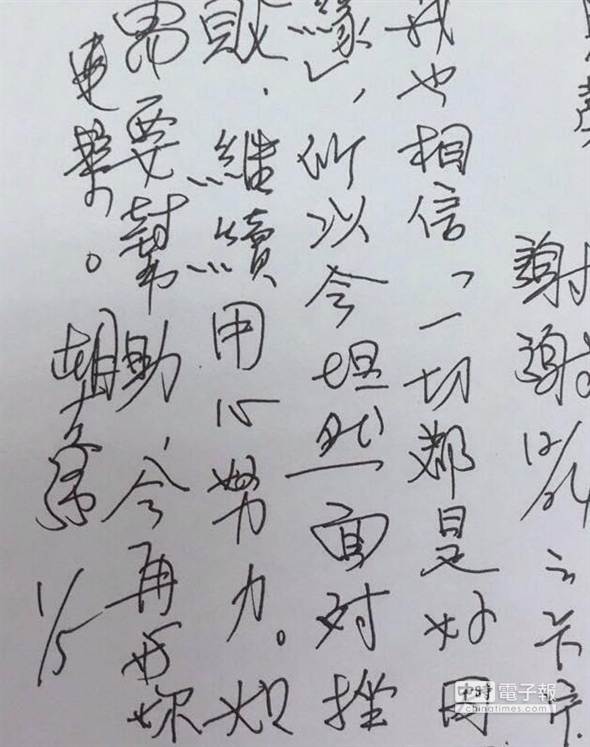 謝謝12/24之卡片.
我也相信「一切都是好因
緣」,所以會坦然面對挫
敗,繼續用心努力。如
需要幫助,會再與妳
連繫。
胡志強 1/5
中時電子報
chinatimes.com